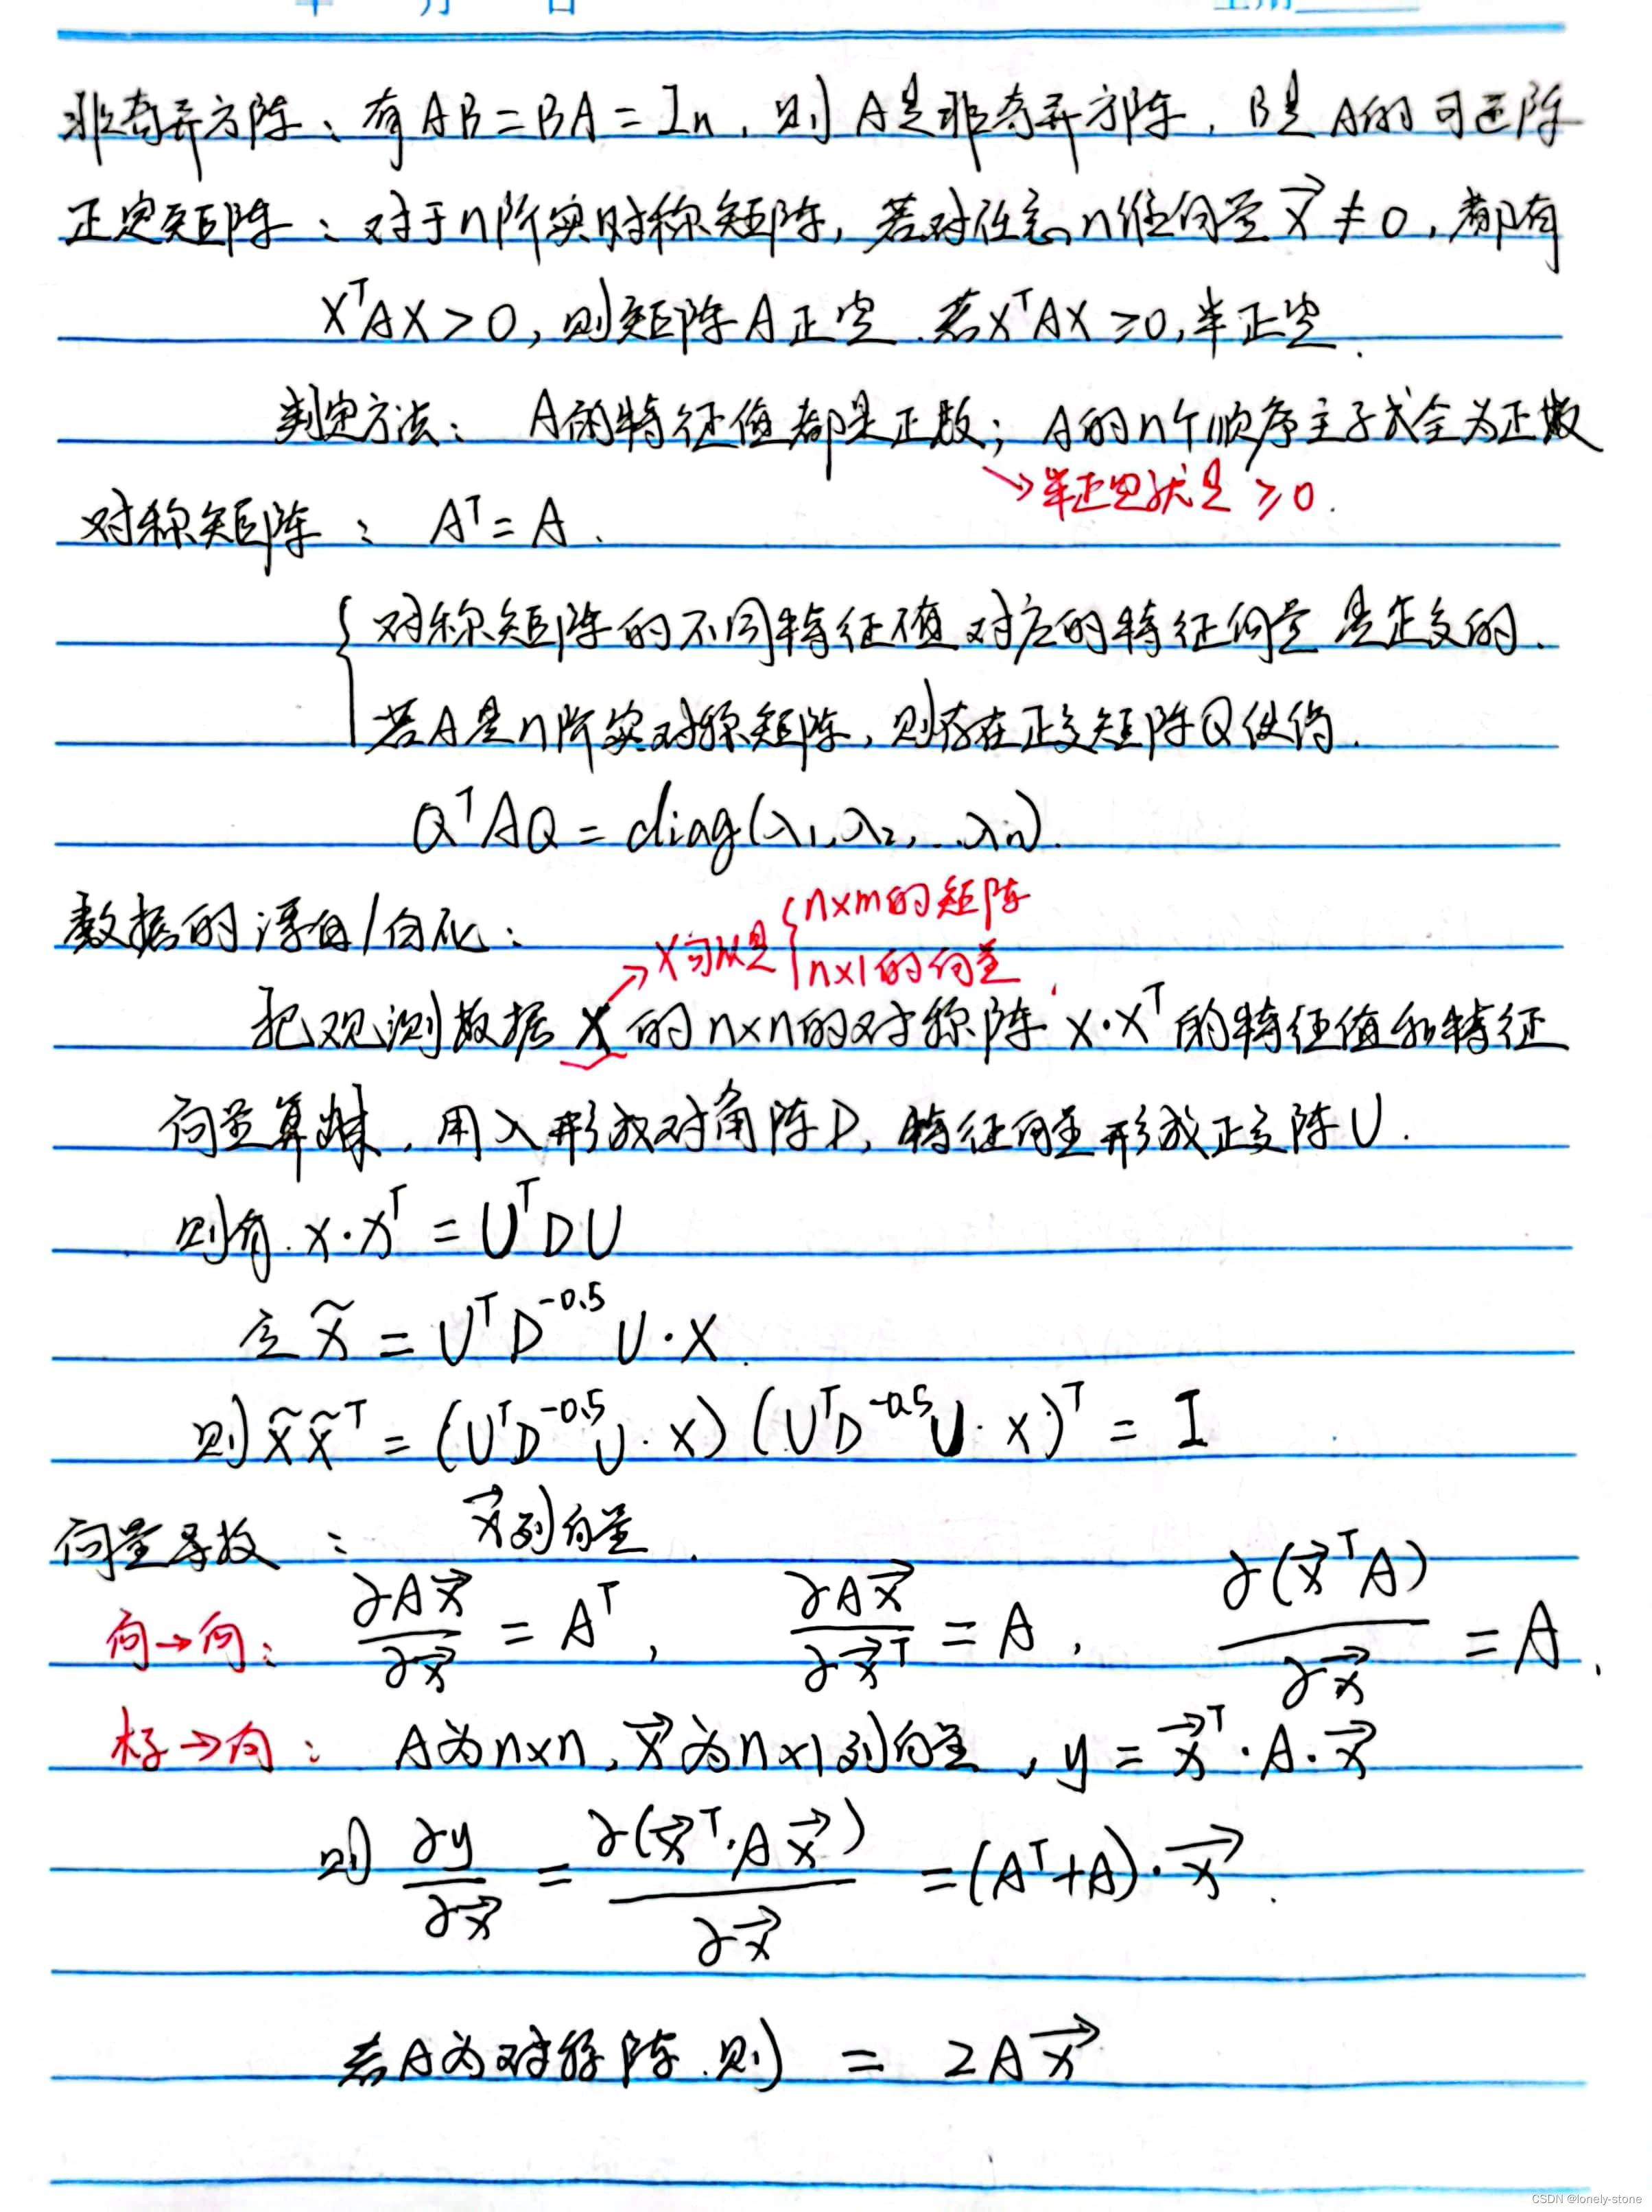 年 月 日
非奇异方阵：有AB=BA=In，则A是非奇异方阵，B是A的可逆阵
正定矩阵：对于n阶实对称矩阵，若对任意n维向量x⃗≠0，都有
XᵀAX>0，则矩阵A正定．若XᵀAX≥0，半正定．
判定方法：A的特征值都是正数；A的n个顺序主子式全为正数
→半正定就是≥0．
对称矩阵：Aᵀ=A．
{对称矩阵的不同特征值对应的特征向量是正交的．
若A是n阶实对称矩阵，则存在正交矩阵Q使得．
QᵀAQ=diag(λ₁,λ₂,…λn)．
数据的漂白/白化：
→x可以是{n×m的矩阵
n×1的向量
把观测数据x的n×n的对称阵x·xᵀ的特征值和特征
向量算出来，用λ形成对角阵D，特征向量形成正交阵U．
则有．x·xᵀ=UᵀDU
立x̃=UᵀD⁻⁰·⁵U·x．
则x̃x̃ᵀ=(UᵀD⁻⁰·⁵U·x)(UᵀD⁻⁰·⁵U·x)ᵀ=I
向量导数：x⃗列向量．
向→向：∂Ax⃗/∂x⃗=Aᵀ，∂Ax⃗/∂x⃗ᵀ=A，∂(x⃗ᵀA)/∂x⃗=A．
标→向：A为n×n，x⃗为n×1列向量，y=x⃗ᵀ·A·x⃗
则∂y/∂x⃗=∂(x⃗ᵀ·Ax⃗)/∂x⃗=(Aᵀ+A)·x⃗．
若A为对称阵．则=2Ax⃗
CSDN @lonely-stone